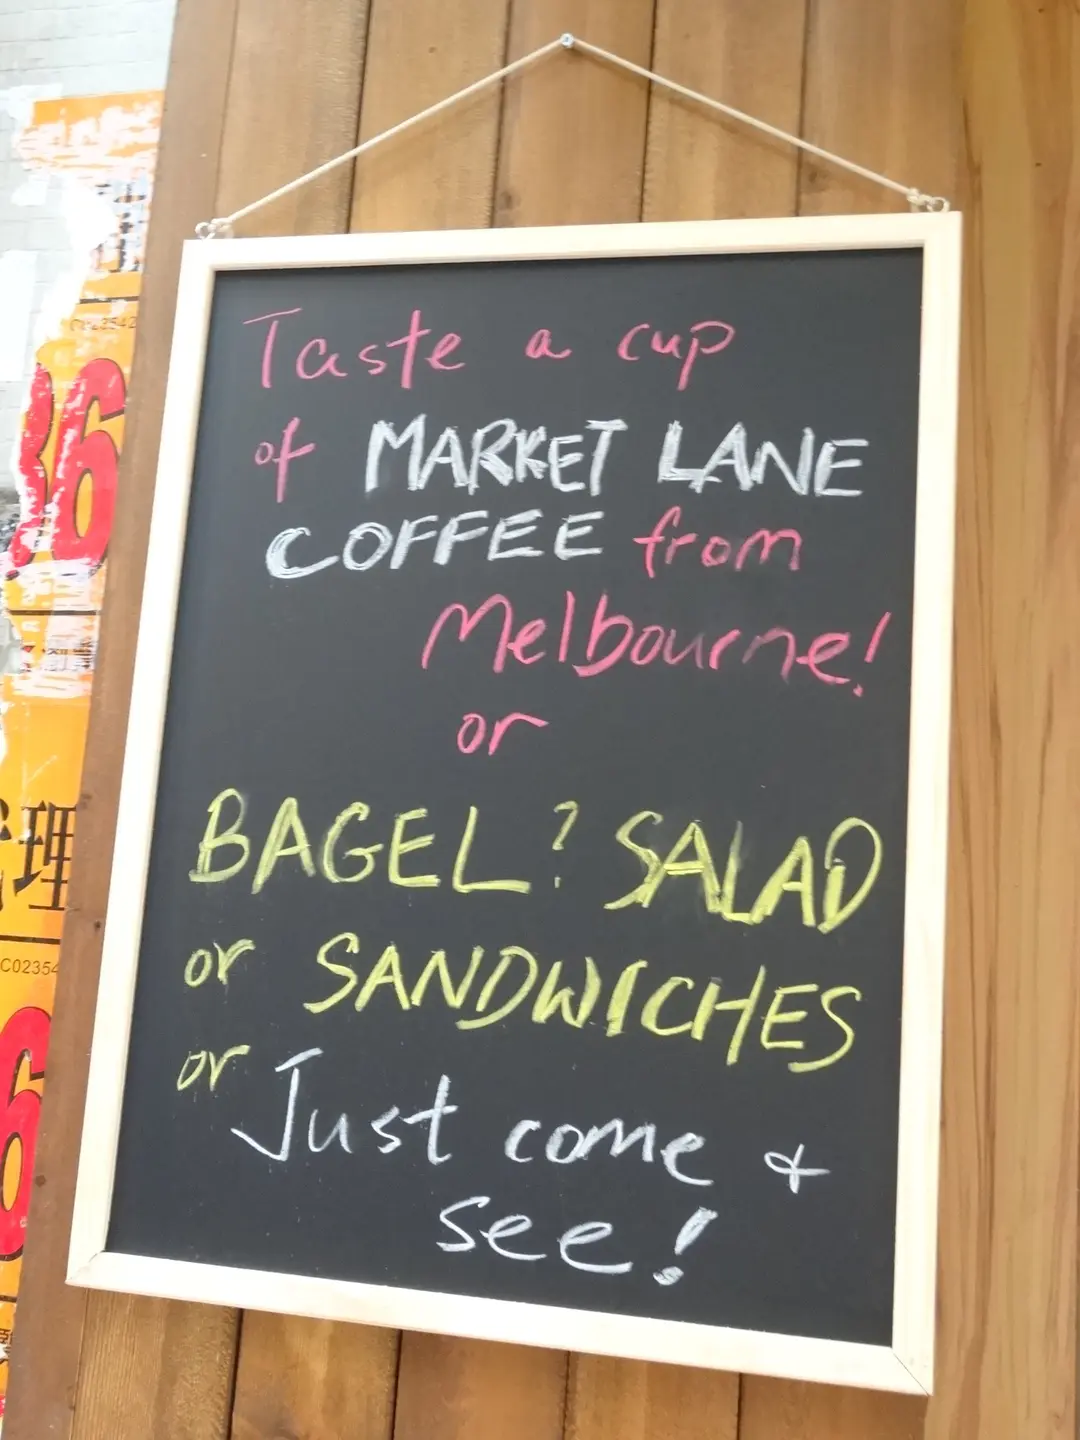 Taste a cup
of MARKET LANE
COFFEE from
Melbourne!
or
BAGEL? SALAD
or SANDWICHES
or Just come &
see!
理
C02354